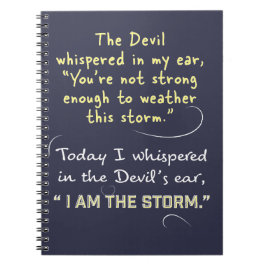 The Devil
whispered in my ear,
"You're not strong
enough to weather
this storm."
Today I whispered
in the Devil's ear,
" I AM THE STORM."